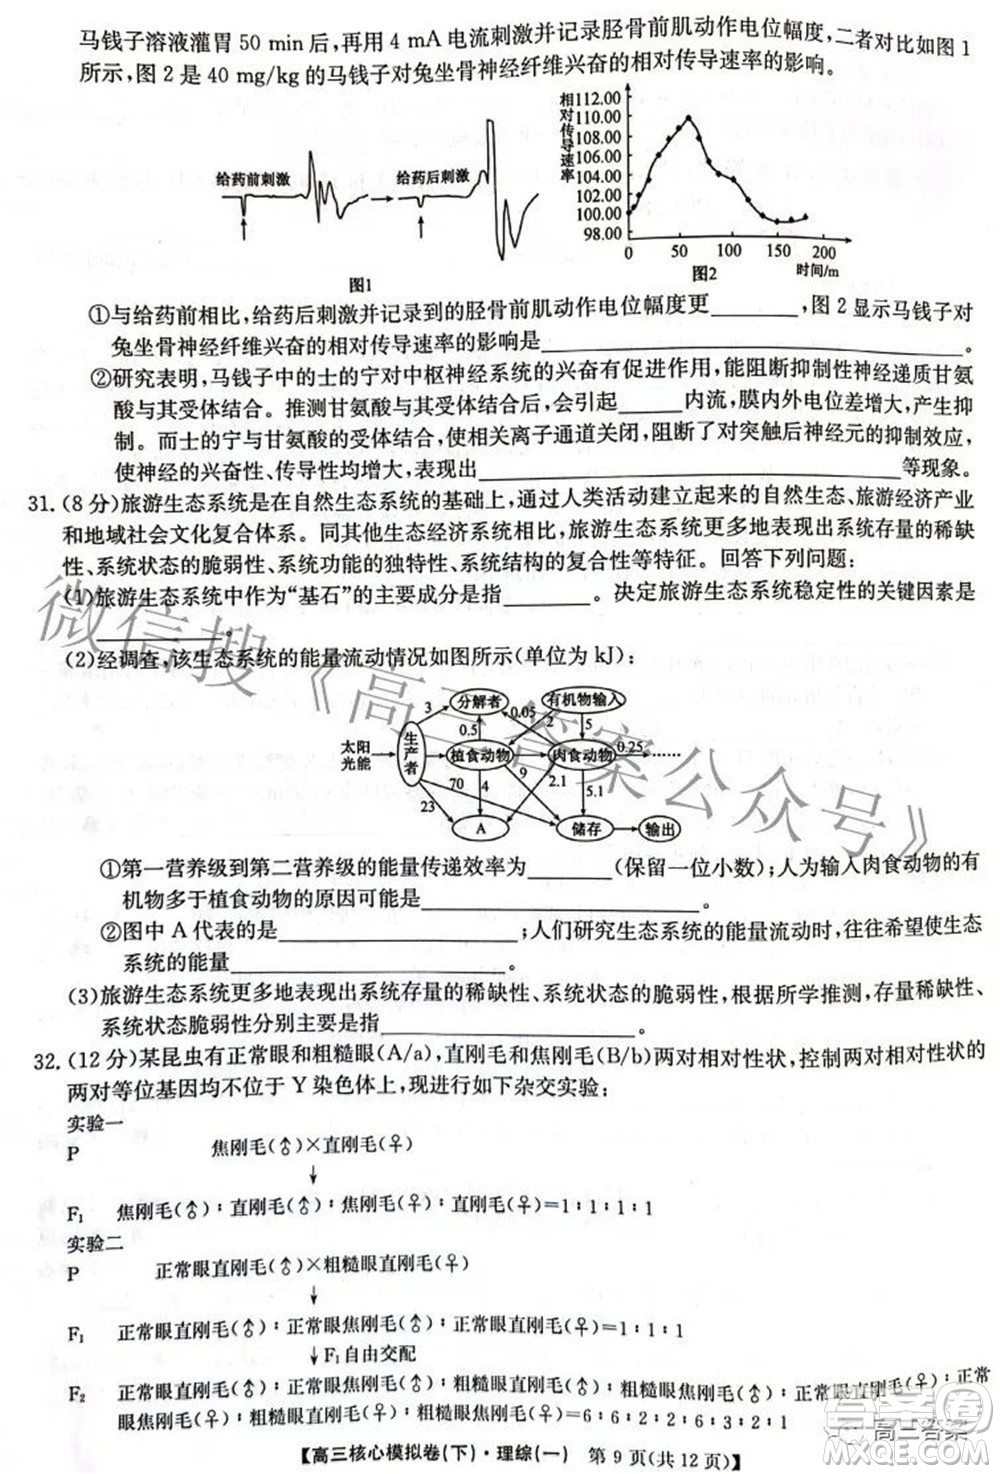 马钱子溶液灌胃 50 min 后,再用 4 mA 电流刺激并记录胫骨前肌动作电位幅度,二者对比如图 1
所示,图 2 是 40 mg/kg 的马钱子对兔坐骨神经纤维兴奋的相对传导速率的影响。
给药前刺激
给药后刺激
图1
相对传导速率
112.00
110.00
108.00
106.00
104.00
102.00
100.00
98.00
0 50 100 150 200
时间/m
图2
①与给药前相比,给药后刺激并记录到的胫骨前肌动作电位幅度更________,图 2 显示马钱子对
兔坐骨神经纤维兴奋的相对传导速率的影响是________。
②研究表明,马钱子中的士的宁对中枢神经系统的兴奋有促进作用,能阻断抑制性神经递质甘氨
酸与其受体结合。推测甘氨酸与其受体结合后,会引起______内流,膜内外电位差增大,产生抑
制。而士的宁与甘氨酸的受体结合,使相关离子通道关闭,阻断了对突触后神经元的抑制效应,
使神经的兴奋性、传导性均增大,表现出________等现象。
31.(8 分)旅游生态系统是在自然生态系统的基础上,通过人类活动建立起来的自然生态、旅游经济产业
和地域社会文化复合体系。同其他生态经济系统相比,旅游生态系统更多地表现出系统存量的稀缺
性、系统状态的脆弱性、系统功能的独特性、系统结构的复合性等特征。回答下列问题:
(1)旅游生态系统中作为“基石”的主要成分是指________。决定旅游生态系统稳定性的关键因素是
________。
(2)经调查,该生态系统的能量流动情况如图所示(单位为 kJ):
分解者 有机物输入
3 0.5 0.05 2 5
太阳光能 生产者 植食动物 肉食动物 0.25 ……
70 4 9 2.1 5.1
23 A 储存 输出
①第一营养级到第二营养级的能量传递效率为________(保留一位小数);人为输入肉食动物的有
机物多于植食动物的原因可能是________。
②图中 A 代表的是________;人们研究生态系统的能量流动时,往往希望使生态
系统的能量________。
(3)旅游生态系统更多地表现出系统存量的稀缺性、系统状态的脆弱性,根据所学推测,存量稀缺性、
系统状态脆弱性分别主要是指________。
32.(12 分)某昆虫有正常眼和粗糙眼(A/a),直刚毛和焦刚毛(B/b)两对相对性状,控制两对相对性状的
两对等位基因均不位于 Y 染色体上,现进行如下杂交实验:
实验一
P 焦刚毛(♂)×直刚毛(♀)
↓
F₁ 焦刚毛(♂):直刚毛(♂):焦刚毛(♀):直刚毛(♀)=1:1:1:1
实验二
P 正常眼直刚毛(♂)×粗糙眼直刚毛(♀)
↓
F₁ 正常眼直刚毛(♂):正常眼焦刚毛(♂):正常眼直刚毛(♀)=1:1:1
↓F₁自由交配
F₂ 正常眼直刚毛(♂):粗糙眼直刚毛(♂):正常眼焦刚毛(♂):粗糙眼焦刚毛(♂):正常眼直刚毛(♀):正常
眼焦刚毛(♀):粗糙眼直刚毛(♀):粗糙眼焦刚毛(♀)=6:6:2:2:6:3:2:1
【高三核心模拟卷(下)·理综(一) 第 9 页(共 12 页)】
微信搜《高三答案公众号》
高三答案
答案圈
MXQE.COM